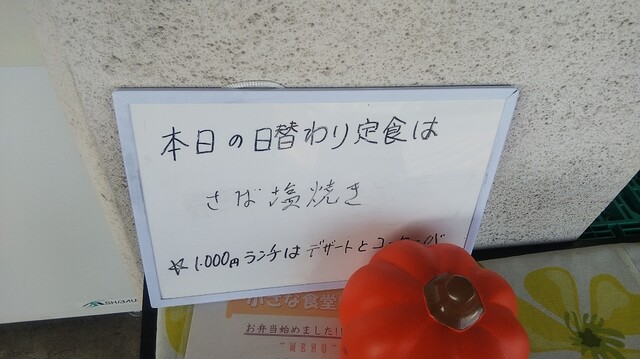 本日の日替わり定食は
さば塩焼き
☆1.000円ランチはデザートとコーヒー
小さな食堂
お弁当始めました!!
MENU
SHIBAU